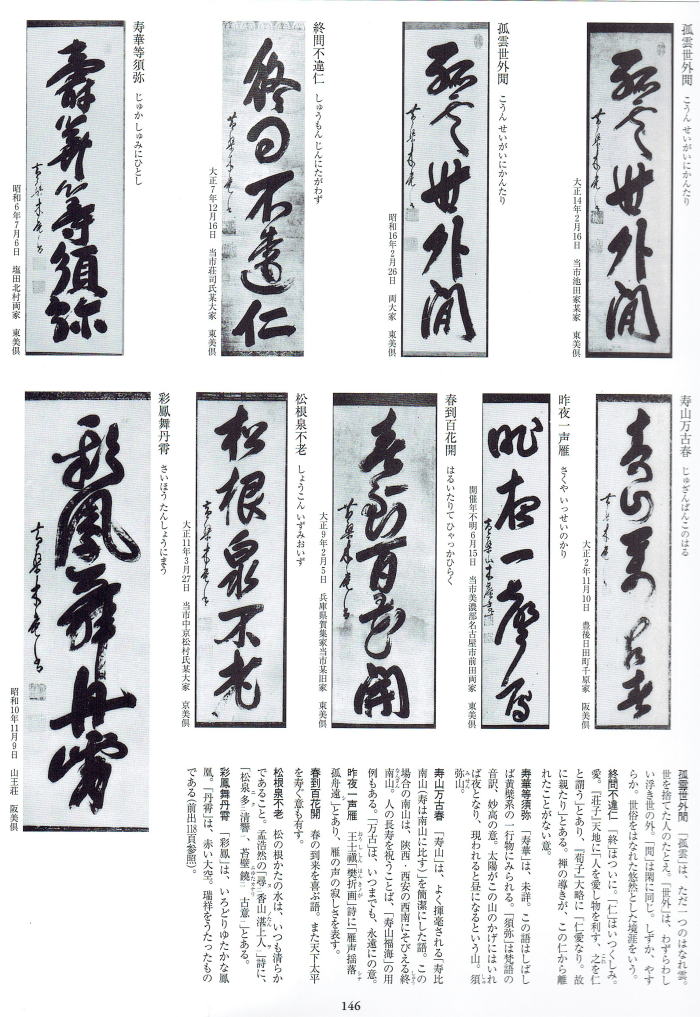 孤雲世外閒　こうん せいがいにかんたり
孤雲世外閒
大正14年2月16日　当市池田家某家　東美倶
孤雲世外閒　こうん せいがいにかんたり
孤雲世外閒
昭和16年2月26日　両大家　東美倶
終間不違仁　しゅうもん じんにたがわず
終間不違仁
大正7年12月16日　当市荘司氏某大家　東美倶
寿華等須弥　じゅか しゅみにひとし
壽華等須弥
昭和6年7月6日　塩田北村両家　東美倶
寿山万古春　じゅざんばんこのはる
寿山万古春
大正2年11月10日　豊後日田町千原家　阪美倶
昨夜一声雁　さくや いっせいのかり
昨夜一聲雁
開催年不明6月15日　当市美濃部名古屋市前田両家　東美倶
春到百花開　はるいたりて ひゃっかひらく
春到百花開
大正9年2月5日　兵庫県賀集家当市某旧家　東美倶
松根泉不老　しょうこん いずみおいず
松根泉不老
大正11年3月27日　当市中京松村氏某大家　京美倶
彩鳳舞丹霄　さいほう たんしょうにまう
彩鳳舞丹霄
昭和10年11月9日　山王荘　阪美倶
孤雲世外閒　「孤雲」は、ただ一つのはなれ雲。
世を捨てた人のたとえ。「世外」は、わずらわし
い浮き世の外。「閒」は閑に同じ。しずか、やす
らか。世俗をはなれた悠然とした境涯をいう。
終問不違仁　「終」はついに。「仁」はいつくしみ。
愛。『荘子』天地に「人を愛し物を利す、之を仁
と謂う」とあり、『荀子』大略に「仁愛なり。故
に親たり」とある。禅の導きが、この仁から離
れたことがない意。
寿華等須弥　「寿華」は、未詳。この語はしばし
ば黄檗系の一行物にみられる。「須弥」は梵語の
音訳、妙高の意。太陽がこの山のかげにはいれ
ば夜となり、現われると昼になるという山。須
弥山。
寿山万古春　「寿山」は、よく揮毫される「寿比
南山（寿は南山に比す）」を簡潔にした語。この
場合の南山は、陝西・西安の西南にそびえる終
南山。人の長寿を祝うことば、「寿山福海」の用
例もある。「万古」は、いつまでも、永遠にの意。
昨夜一声雁　王士禛「樊折画」詩に「雁声揺落
孤舟遠」とあり、雁の声の寂しさを表す。
春到百花開　春の到来を喜ぶ語。また天下太平
を寿ぐ意も有す。
松根泉不老　松の根かたの水は、いつも清らか
であること。孟浩然の「尋香山湛上人」詩に、
「松泉多清響、苔壁饒古意」とある。
彩鳳舞丹霄　「彩鳳」は、いろどりゆたかな鳳
凰。「丹霄」は、赤い大空。瑞祥をうたったもの
である（前出118頁参照）。
146